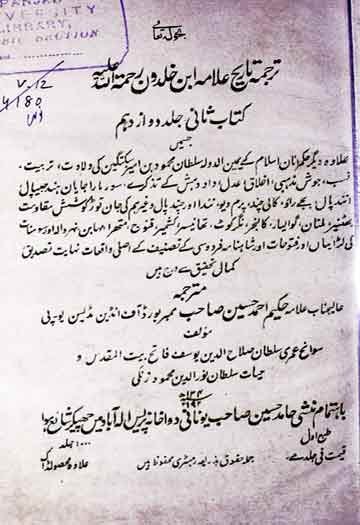 PANJAB
UNIVERSITY
LIBRARY,
SECTION
V-2
ترجمہ تاریخ علامہ ابن خلدون رحمۃ اللہ علیہ
کتاب ثانی جلد دوازدہم
جسمیں
علاوہ دیگر حکمرانان اسلام کے یمین الدولہ سلطان محمود بن امیر سبکتگین کی ولادت، تربیت،
نسب، جوش مذہبی، اخلاق، عدل، داد و دہش کے تذکرے، سورما راجایان ہند جیپال
انند پال، بجے راؤ، کالی چند، پرم دیو، نندا اور چند پال وغیرہم کی جان توڑ کوشش مقاومت
بھٹنیر، ملتان، گوالیار، کالنجر، نگرکوٹ، تھانیسر، کشمیر، قنوج، متھرا، مہابن، نہروالہ اور سومنات
کی لڑائیاں اور فتوحات اور شاہنامہ فردوسی کے تصنیف کے اصلی واقعات نہایت تصدیق
کمال تحقیق سے درج ہیں
مترجمہ
عالیجناب علامہ حکیم احمد حسین صاحب ممبر بورڈ آف انڈین میڈیسن یو پی
مؤلف
سوانح عمری سلطان صلاح الدین یوسف فاتح بیت المقدس و
حیات سلطان نور الدین محمود زنگی
باہتمام منشی حامد حسین صاحب یونانی دواخانہ پریس الہ آباد میں چھپکر شائع ہوا
طبع اول
۱۰۰۰ جلد
قیمت فی جلد
جملہ حقوق بذریعہ رجسٹری محفوظ ہیں
علاوہ محصولڈاک